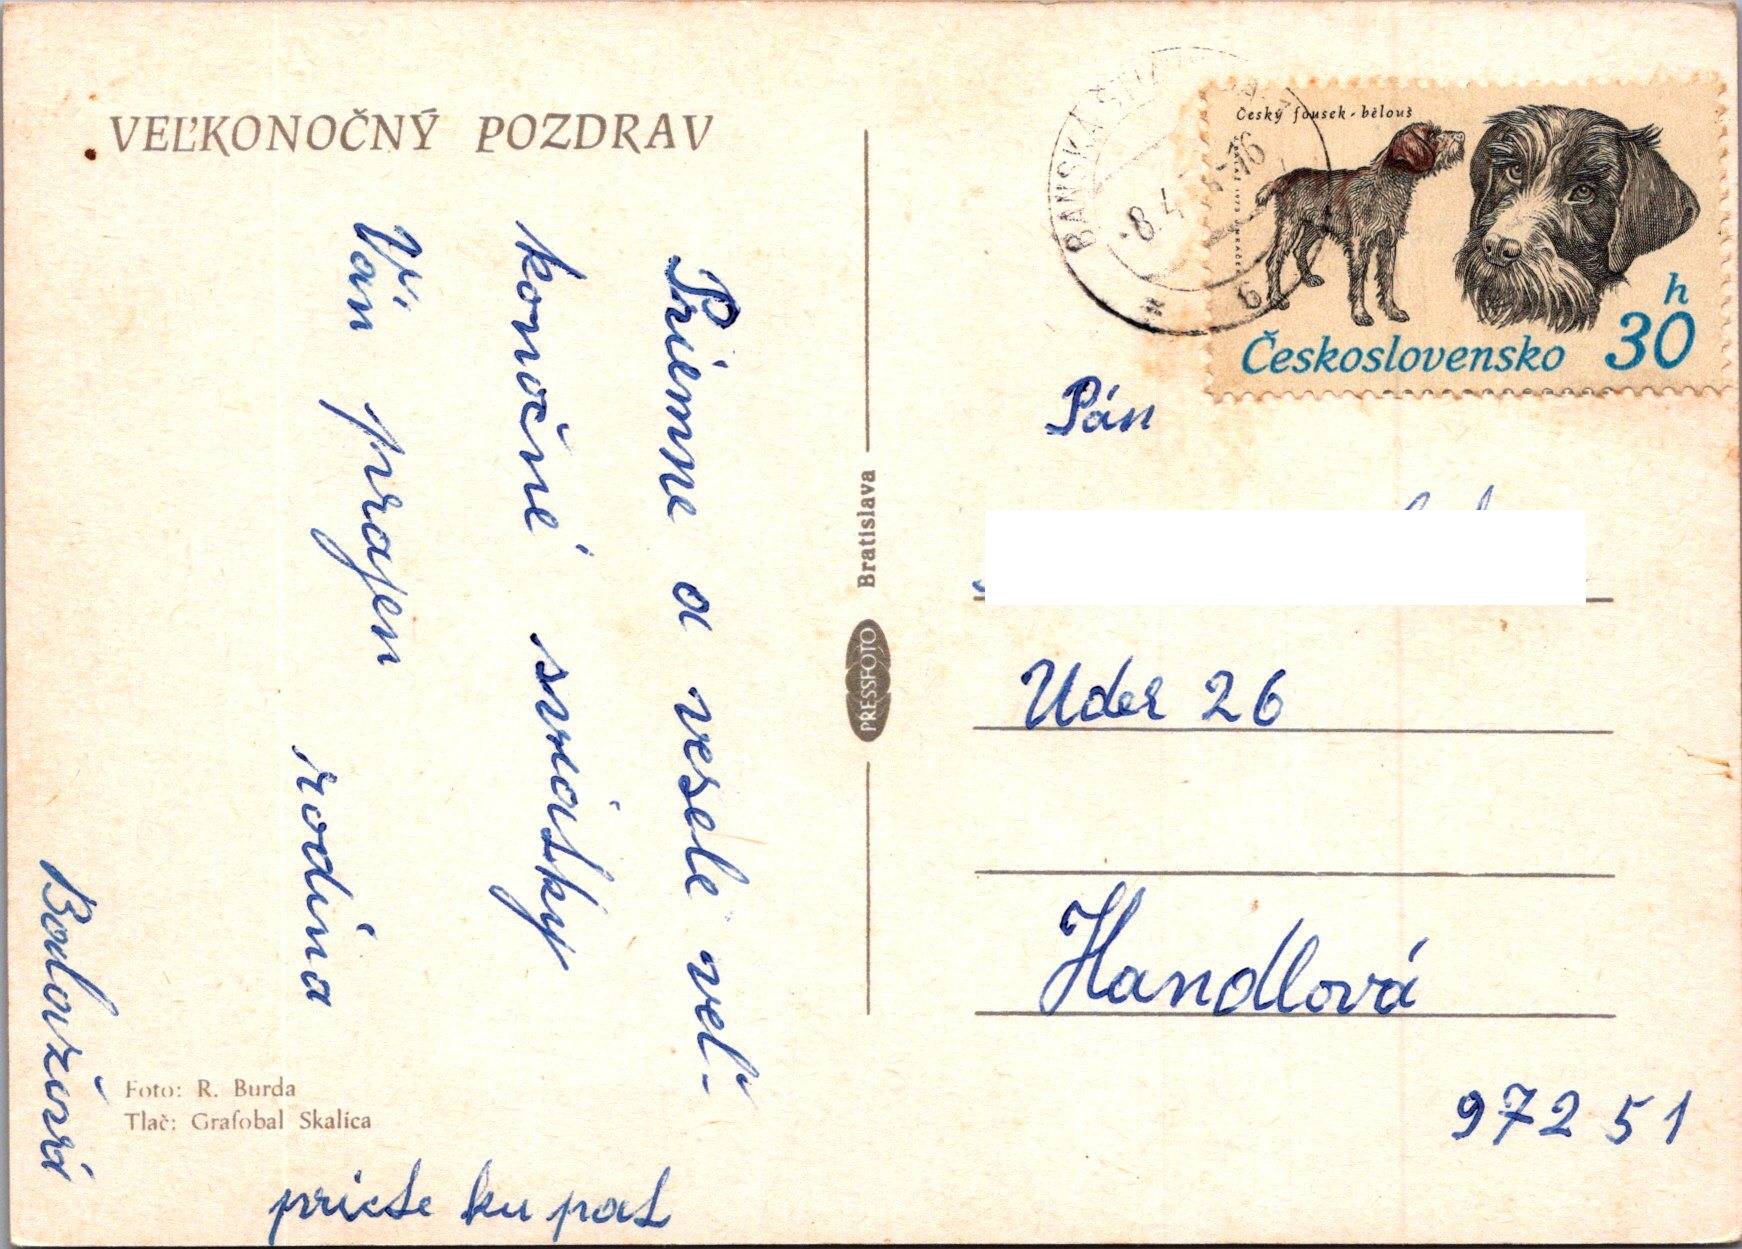 VEĽKONOČNÝ POZDRAV
Príemne a veselé veľ-
konočné sviatky
Vám prajem
rodina
Bodovzová
Foto: R. Burda
Tlač: Grafobal Skalica
pricte ku pat
PRESSFOTO Bratislava
BANSKÁ ŠTIA
8.4
6
Český fousek-bělouš
h
30
Československo
Pán
Uder 26
Handlová
972 51